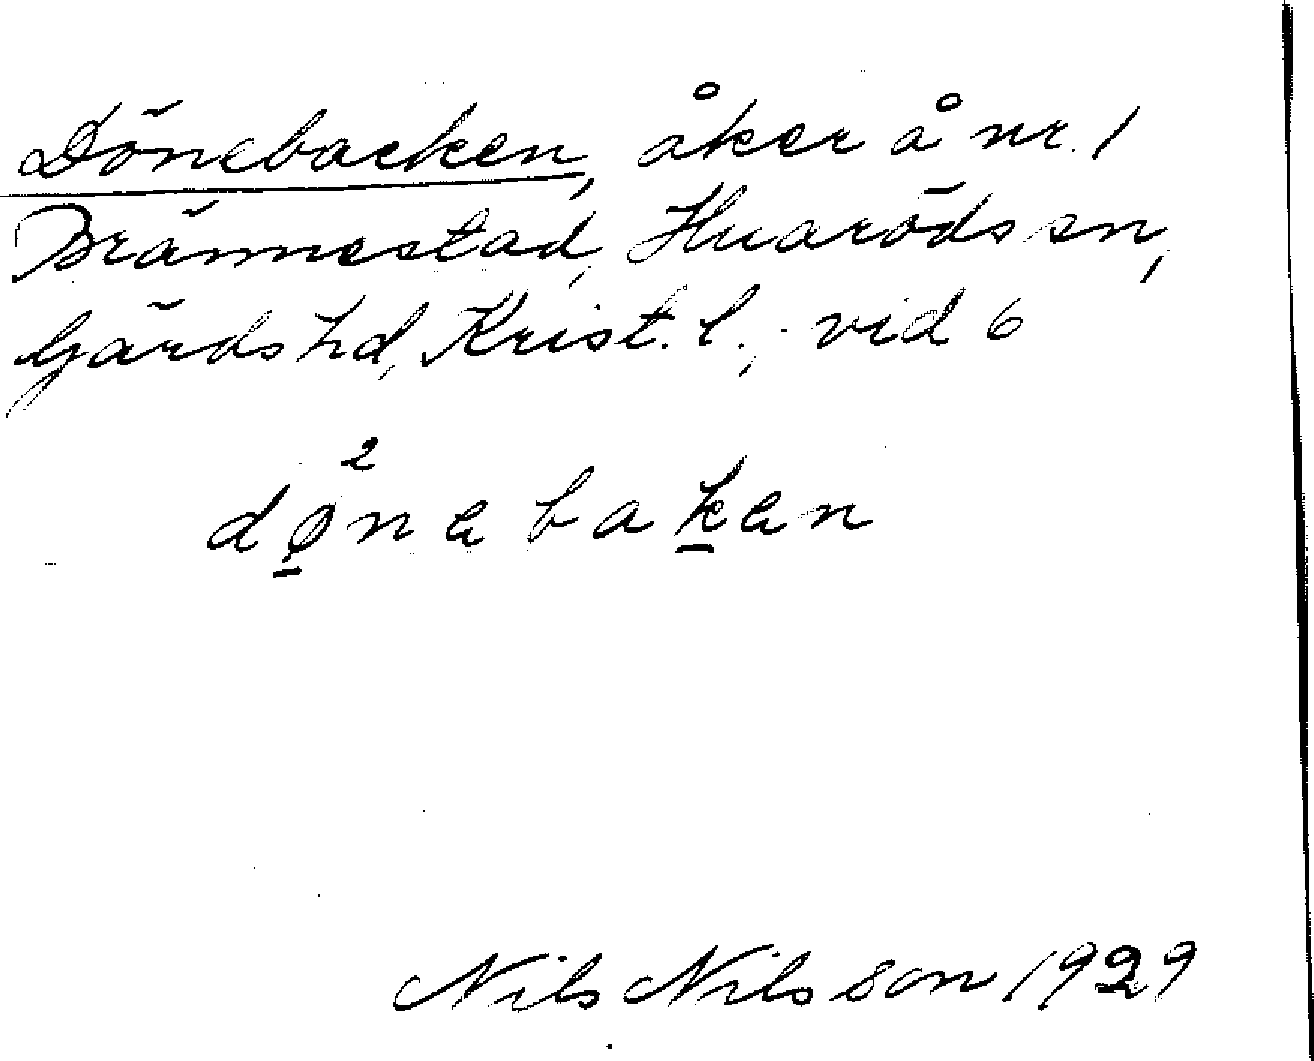 Dönebacken, åker å nr. 1
Brännestad, Huaröds sn,
Gärds hd, Krist. l.; vid 6
2
dø̱nabak̠an
Nils Nilsson 1929